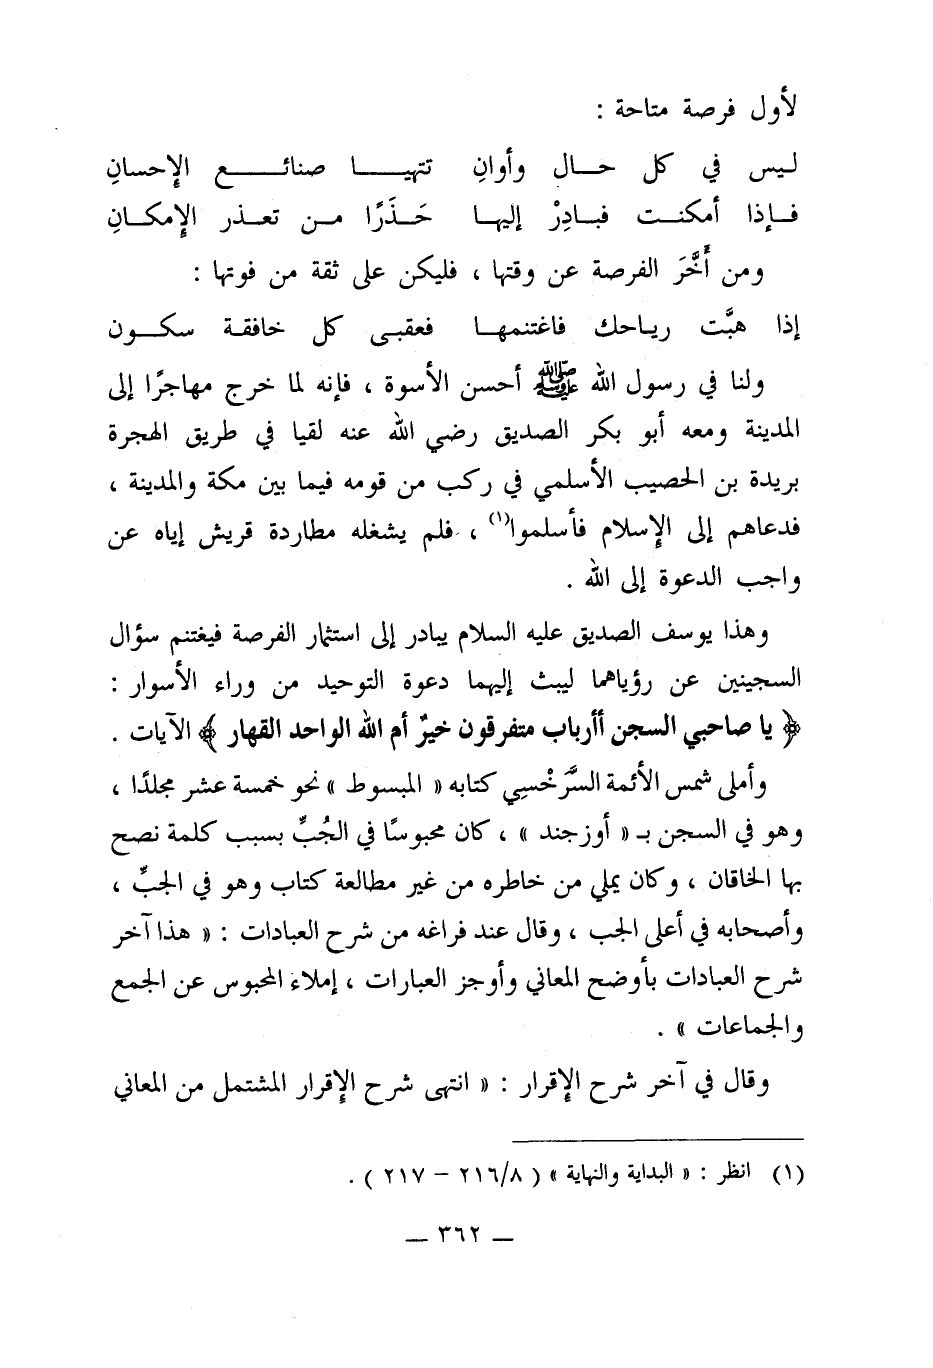 لأول فرصة متاحة :
ليس في كل حال وأوانِ تتهيا صنائع الإحسانِ
فإذا أمكنت فبادِرْ إليها حَذَرًا من تعذر الإمكانِ
ومن أَخَّرَ الفرصة عن وقتها ، فليكن على ثقة من فوتها :
إذا هبَّت رياحك فاغتنمها فعقبى كل خافقة سكون
ولنا في رسول الله ﷺ أحسن الأسوة ، فإنه لما خرج مهاجرًا إلى
المدينة ومعه أبو بكر الصديق رضي الله عنه لقيا في طريق الهجرة
بريدة بن الحصيب الأسلمي في ركب من قومه فيما بين مكة والمدينة ،
فدعاهم إلى الإسلام فأسلموا(١) ، فلم يشغله مطاردة قريش إياه عن
واجب الدعوة إلى الله .
وهذا يوسف الصديق عليه السلام يبادر إلى استثمار الفرصة فيغتنم سؤال
السجينين عن رؤياهما ليبث إليهما دعوة التوحيد من وراء الأسوار :
﴿ يا صاحبي السجن أأرباب متفرقون خيرٌ أم الله الواحد القهار ﴾ الآيات .
وأملى شمس الأئمة السَّرَخْسِي كتابه « المبسوط » نحو خمسة عشر مجلدًا ،
وهو في السجن بـ « أوزجند » ، كان محبوسًا في الجُبِّ بسبب كلمة نصح
بها الخاقان ، وكان يملي من خاطره من غير مطالعة كتاب وهو في الجبِّ ،
وأصحابه في أعلى الجب ، وقال عند فراغه من شرح العبادات : « هذا آخر
شرح العبادات بأوضح المعاني وأوجز العبارات ، إملاء المحبوس عن الجمع
والجماعات » .
وقال في آخر شرح الإقرار : « انتهى شرح الإقرار المشتمل من المعاني
(١) انظر : « البداية والنهاية » ( ٢١٦/٨ – ٢١٧ ) .
— ٣٦٢ —